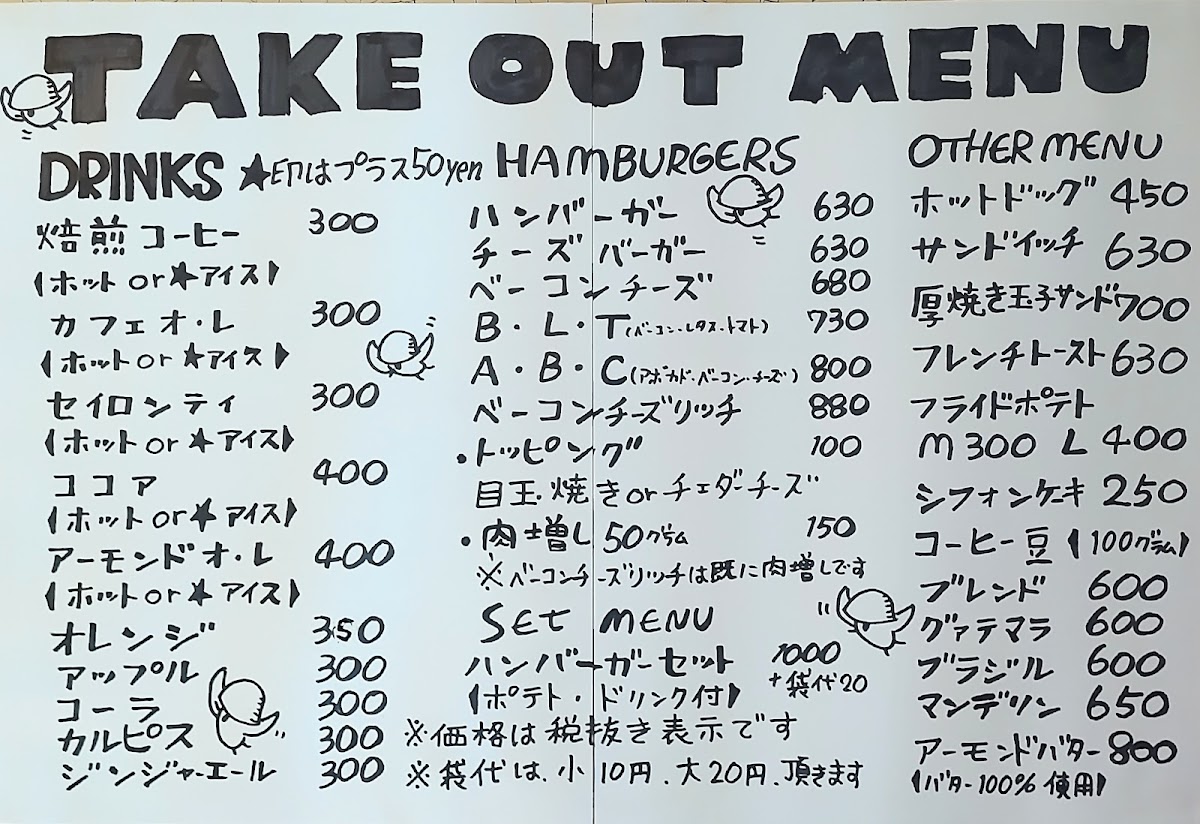 TAKE OUT MENU
DRINKS ★印はプラス50yen
焙煎コーヒー 300
(ホット or ★アイス)
カフェオ・レ 300
(ホット or ★アイス)
セイロンティ 300
(ホット or ★アイス)
ココア 400
(ホット or ★アイス)
アーモンドオ・レ 400
(ホット or ★アイス)
オレンジ 350
アップル 300
コーラ 300
カルピス 300
ジンジャーエール 300
HAMBURGERS
ハンバーガー 630
チーズバーガー 630
ベーコンチーズ 680
B・L・T(ベーコン・レタス・トマト) 730
A・B・C(アボカド・ベーコン・チーズ) 800
ベーコンチーズリッチ 880
・トッピング 100
目玉焼き or チェダーチーズ
・肉増し 50グラム 150
※ベーコンチーズリッチは既に肉増しです
SET MENU
ハンバーガーセット 1000
(ポテト・ドリンク付) +袋代20
※価格は税抜き表示です
※袋代は、小10円、大20円、頂きます
OTHER MENU
ホットドッグ 450
サンドイッチ 630
厚焼き玉子サンド 700
フレンチトースト 630
フライドポテト
M 300 L 400
シフォンケーキ 250
コーヒー豆 (100グラム)
ブレンド 600
グァテマラ 600
ブラジル 600
マンデリン 650
アーモンドバター 800
(バター100%使用)